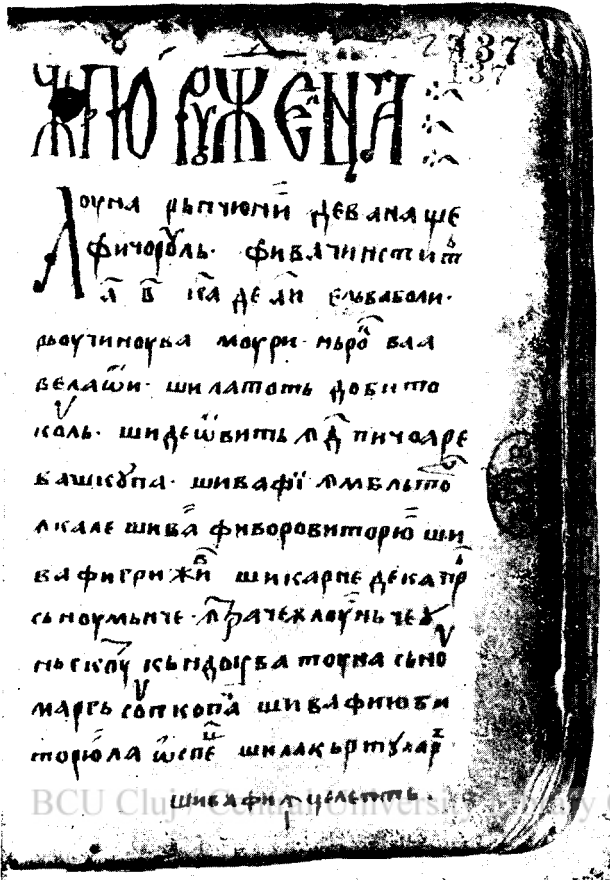 137
137
Лоуна рьпчюнїи де ва наще
фичорꙋль. фи ва чинстить
в ка де ани ель ва боли.
рьоу чиноува моури. ньро ваа
ве ла ѡи. ши ла тоть добито
кꙋль. ши деѡвить ꙟд пичоаре
ва шкꙋпа. ши ва фїи ꙟмбльто
л кале ши ва фи боровиторю ши
ва фи грижив ши карне де капрь
сь ноу мьнче. лоунь че
кьндь ва тоуна сь но
марь сꙋп копа ши ва фи юби
торю ла ѡспец ши ла кьртꙋлар
ши ва фи ꙟцелепть.
BCU Cluj / Central University Library